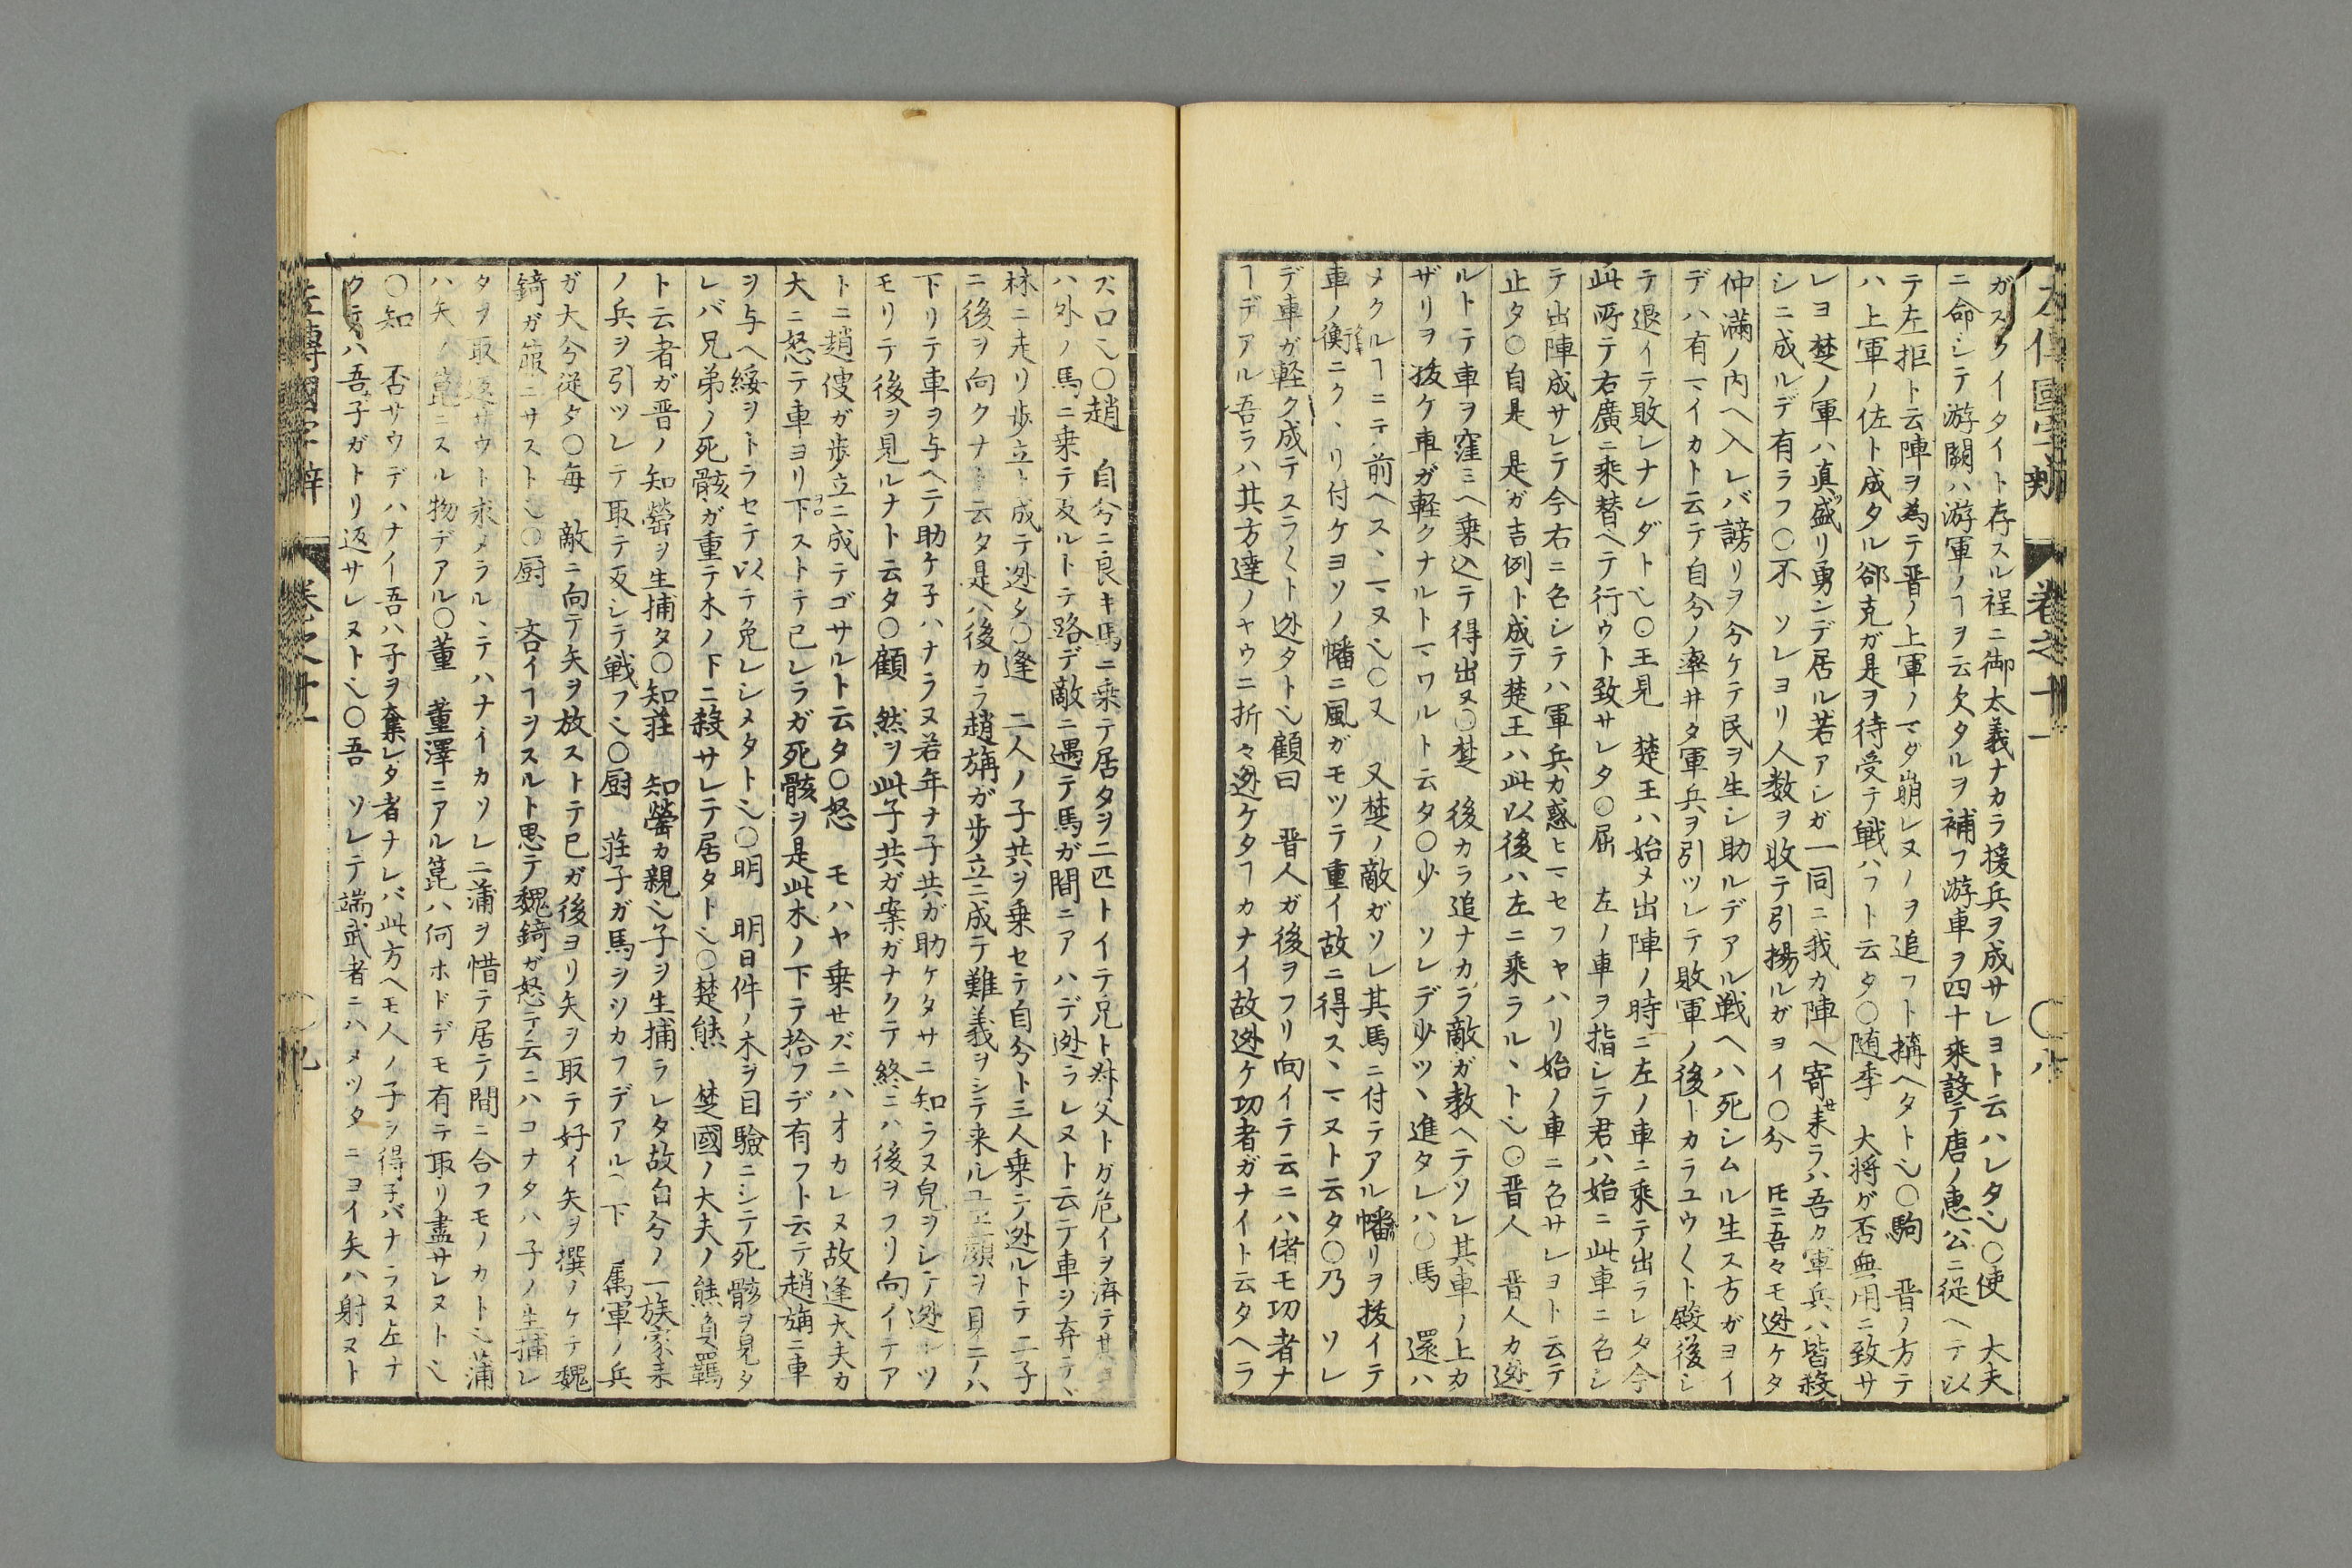 左傳國字辨 卷之十一 〇八
ガスクイタイト存スル裎ニ御太義ナカラ援兵ヲ成サレヨト云ハレタ〻〇使 大夫
ニ命シテ游闕ハ游軍ノヿヲ云欠タルヲ補フ游車ヲ四十乗設テ唐ノ恵公ニ従ヘテ以
テ左拒ト云陣ヲ為テ晋ノ上軍ノマダ崩レヌノヲ追フト搆ヘタト〻〇駒 晋ノ方テ
ハ上軍ノ佐ト成タル郤克ガ是ヲ待受テ戦ハフト云タ〇随季 大将ガ否無用ニ致サ
レヨ楚ノ軍ハ真盛リ勇ンデ居ル若アシガ一同ニ我カ陣ヘ寄来ラハ吾ク軍兵ハ皆殺
シニ成ルデ有ラフ〇不 ソレヨリ人数ヲ收テ引揚ルガヨイ〇分 𪜈ニ吾々モ迯ケタ
仲満ノ内ヘ入レバ謗リヲ分ケテ民ヲ生シ助ルデアル戦ヘハ死シムル生ス方ガヨイ
デハ有マイカト云テ自分ノ率井タ軍兵ヲ引ツレテ敗軍ノ後トカラユウ〱ト殿後シ
テ退イテ敗レナンダト〻〇王見 楚王ハ始メ出陣ノ時ニ左ノ車ニ乗テ出ラレタ今
此所テ右廣ニ乗替ヘテ行ウト致サレタ〇屈 左ノ車ヲ指シテ君ハ始ニ此車ニ名シ
テ出陣成サレテ今右ニ名シテハ軍兵カ惑ヒマセフヤハリ始ノ車ニ名サレヨト云テ
止タ〇自是 是ガ吉例ト成テ楚王ハ此以後ハ左ニ乗ラルヽト〻〇晋人 晋人カ迯
ルトテ車ヲ窪ミヘ乗込テ得出ヌ〇楚 後カラ追ナカラ敵ガ教ヘテソレ其車ノ上カ
ザリヲ抜ケ車ガ軽クナルトマワルト云タ〇少 ソレデ少ツヽ進タレハ〇馬 還ハ
メクルヿニテ前ヘスヽマヌ〻〇又 又楚ノ敵ガソレ其馬ニ付テアル幡リヲ抜イテ
車ノ衡ニクヽリ付ケヨソノ幡ニ風ガモツテ重イ故ニ得スヽマヌト云タ〇乃 ソレ
デ車ガ軽ク成テスラ〱ト迯タト〻顧曰 晋人ガ後ヲフリ向イテ云ニハ偖モ功者ナ
ヿデアル吾ラハ其方達ノヤウニ折々迯ケタヿカナイ故迯ケ功者ガナイト云タヘラ
ズ口〻〇趙 自分ニ良キ馬ニ乗テ居タヲ二匹トイテ兄ト叔父トガ危イヲ済テ其
ハ外ノ馬ニ乗テ反ルトテ路デ敵ニ遇テ馬ガ間ニアハデ迯ラレヌト云テ車ヲ弃テヽ
林ニ走リ歩立ト成テ迯タ〇逢 二人ノ子共ヲ乗セテ自分ト三人乗テ迯ルトテ二子
ニ後ヲ向クナト云タ是ハ後カラ趙旃ガ歩立ニ成テ難義ヲシテ来ルユエ顔ヲ見テハ
下リテ車ヲ与ヘテ助ケ子ハナラヌ若年ナ子共ガ助ケタサニ知ラヌ皃ヲシテ迯ルツ
モリテ後ヲ見ルナト云タ〇顧 然ヲ此子共ガ案ガナクテ終ニハ後ヲフリ向イテア
トニ趙傁ガ歩立ニ成テゴサルト云タ〇怒 モハヤ乗せズニハオカレヌ故逢大夫カ
大ニ怒テ車ヨリ下ストテ己レラガ死骸ヲ是此木ノ下テ拾フデ有フト云テ趙旃ニ車
ヲ与ヘ綏ヲトラセテ以テ免レシメタト〻〇明 明日件ノ木ヲ目驗ニシテ死骸ヲ見タ
レバ兄弟ノ死骸ガ重テ木ノ下ニ殺サレテ居タト〻〇楚熊 楚國ノ大夫ノ熊負羈
ト云者ガ晋ノ知罃ヲ生捕タ〇知荘 知罃カ親〻子ヲ生捕ラレタ故自分ノ一族家来
ノ兵ヲ引ツレテ取テ反シテ戦フ〻〇厨 荘子ガ馬ヲツカフデアル〇下 属軍ノ兵
ガ大分従タ〇毎 敵ニ向テ矢ヲ放ストテ已ガ後ヨリ矢ヲ取テ好イ矢ヲ撰ノケテ魏
錡ガ箙ニサスト〻〇厨 吝イヿヲスルト思テ魏錡ガ怒テ云ニハコナタハ子ノ生捕レ
タヲ取返サウト求メラルヽテハナイカソレニ蒲ヲ惜テ居テノ間ニ合フモノカト〻蒲
ハ矢ノ箆ニスル物デアル〇董 董澤ニアル箆ハ何ホドデモ有テ取リ盡サレヌト〻
〇知 否サウデハナイ吾ハ子ヲ棄レタ者ナレバ此方ヘモ人ノ子ヲ得子バナラヌ左ナ
クテハ吾子ガトリ返サレヌト〻〇吾 ソレテ端武者ニハメツタニヨイ矢ハ射ヌト
左傳國字辨 卷之十一 〇九